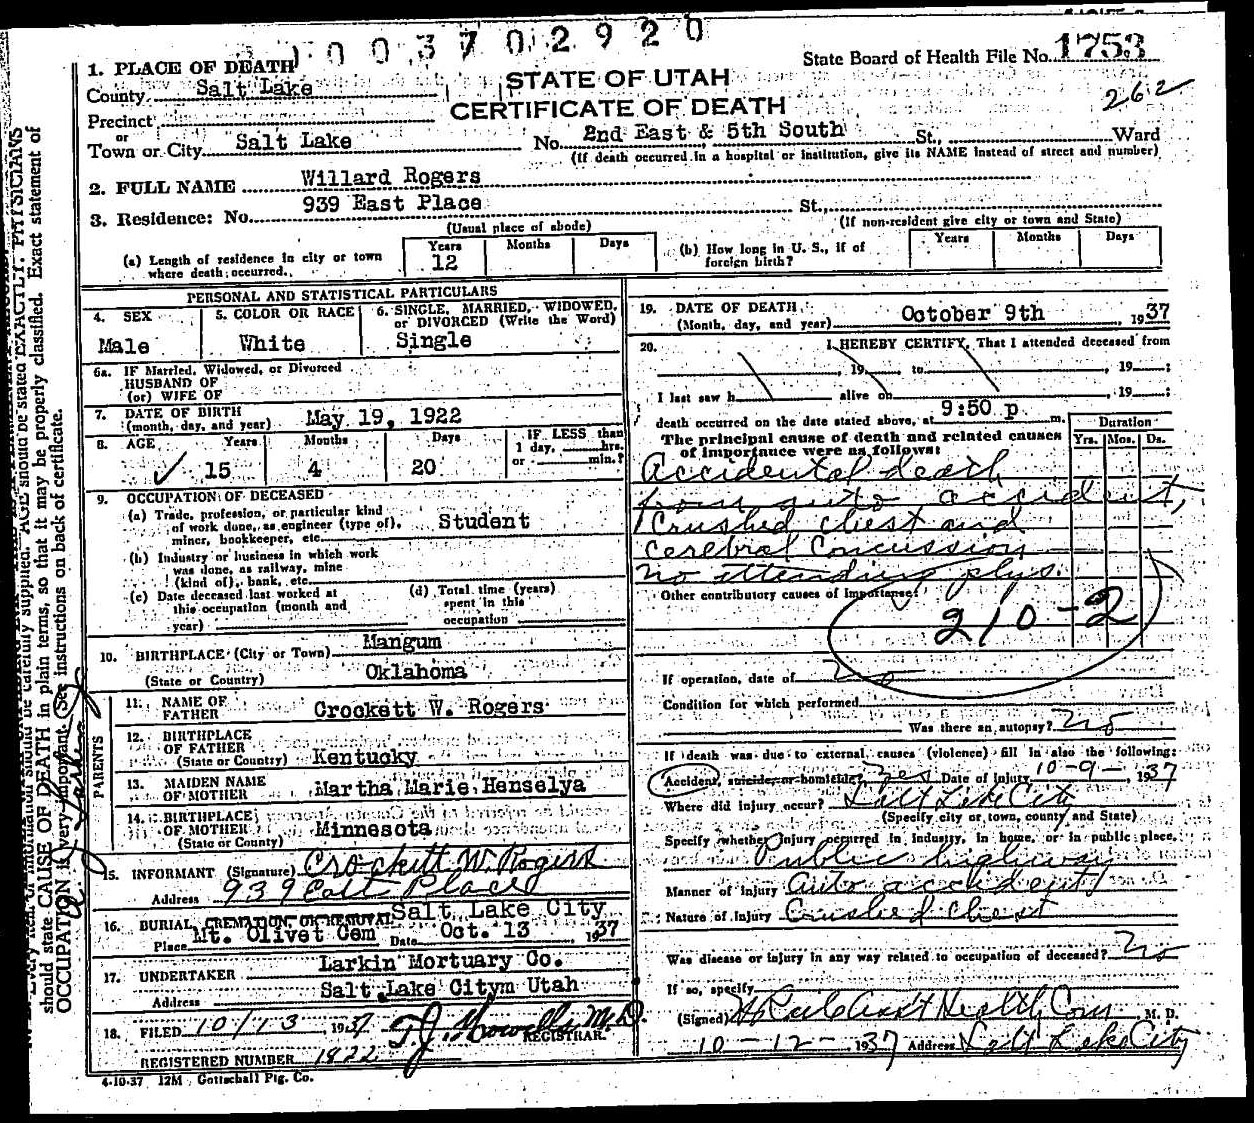 1003702920
State Board of Health File No. 1753
1. PLACE OF DEATH
STATE OF UTAH
County Salt Lake
CERTIFICATE OF DEATH
262
Precinct
or
Town or City Salt Lake No. 2nd East & 5th South St., Ward
(If death occurred in a hospital or institution, give its NAME instead of street and number)
2. FULL NAME Willard Rogers
3. Residence: No. 939 East Place St.,
(Usual place of abode) (If non-resident give city or town and State)
(a) Length of residence in city or town where death occurred. Years 12 Months Days
(b) How long in U. S., if of foreign birth? Years Months Days
PERSONAL AND STATISTICAL PARTICULARS
4. SEX Male
5. COLOR OR RACE White
6. SINGLE, MARRIED, WIDOWED, or DIVORCED (Write the Word) Single
6a. IF Married, Widowed, or Divorced
HUSBAND OF
(or) WIFE OF
7. DATE OF BIRTH (month, day, and year) May 19, 1922
8. AGE Years 15 Months 4 Days 20 IF LESS than 1 day, hrs. or min.?
9. OCCUPATION OF DECEASED
(a) Trade, profession, or particular kind of work done, as engineer (type of), miner, bookkeeper, etc. Student
(b) Industry or business in which work was done, as railway, mine (kind of), bank, etc.
(c) Date deceased last worked at this occupation (month and year)
(d) Total time (years) spent in this occupation
10. BIRTHPLACE (City or Town) Mangum
(State or Country) Oklahoma
PARENTS
11. NAME OF FATHER Crockett W. Rogers
12. BIRTHPLACE OF FATHER (State or Country) Kentucky
13. MAIDEN NAME OF MOTHER Martha Marie Henselya
14. BIRTHPLACE OF MOTHER (State or Country) Minnesota
15. INFORMANT (Signature) Crockett W. Rogers
Address 939 East Place
16. BURIAL, CREMATION, OR REMOVAL Salt Lake City
Place Mt. Olivet Cem Date Oct. 13, 1937
17. UNDERTAKER Larkin Mortuary Co.
Address Salt Lake Citym Utah
18. FILED 10/13 1937 T.J. Howells M.D. REGISTRAR.
REGISTERED NUMBER 1822
4-10-37 12M Gottschall Ptg. Co.
19. DATE OF DEATH (Month, day, and year) October 9th, 1937
20. I HEREBY CERTIFY, That I attended deceased from
, 19 to , 19 ;
I last saw h alive on , 19 ;
death occurred on the date stated above, at 9:50 p m.
The principal cause of death and related causes of importance were as follows:
Duration
Yrs. Mos. Ds.
Accidental death
from auto accident,
Crushed chest and
Cerebral Concussion
No attending phys.
Other contributory causes of importance:
210-2
If operation, date of No
Condition for which performed
Was there an autopsy? No
If death was due to external causes (violence) fill in also the following:
Accident, suicide, or homicide? Yes Date of injury 10-9-, 1937
Where did injury occur? Salt Lake City
(Specify city or town, county and State)
Specify whether injury occurred in industry, in home, or in public place.
Public highway
Manner of injury Auto accident
Nature of injury Crushed chest
Was disease or injury in any way related to occupation of deceased? No
If so, specify
(Signed) Asst Health Com M. D.
10-12-, 1937 Address Salt Lake City
should state CAUSE OF DEATH in plain terms, so that it may be properly classified. Exact statement of
OCCUPATION is very important. See instructions on back of certificate.